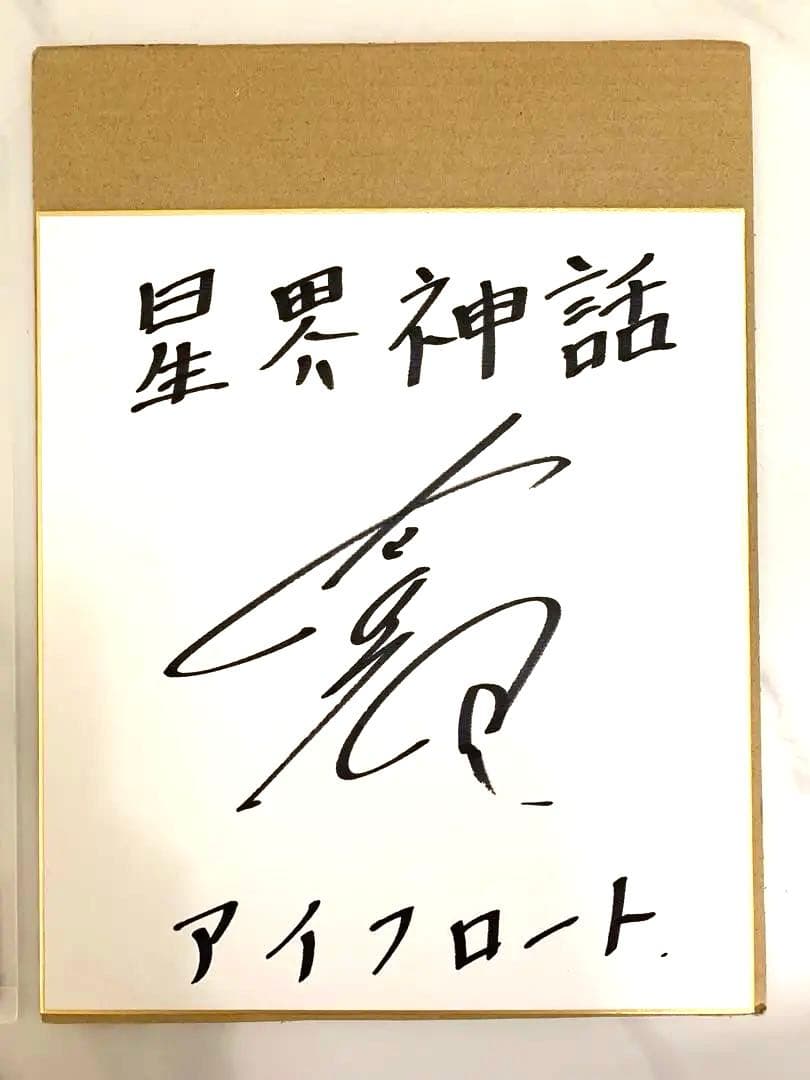 星界神話
アイフロート.